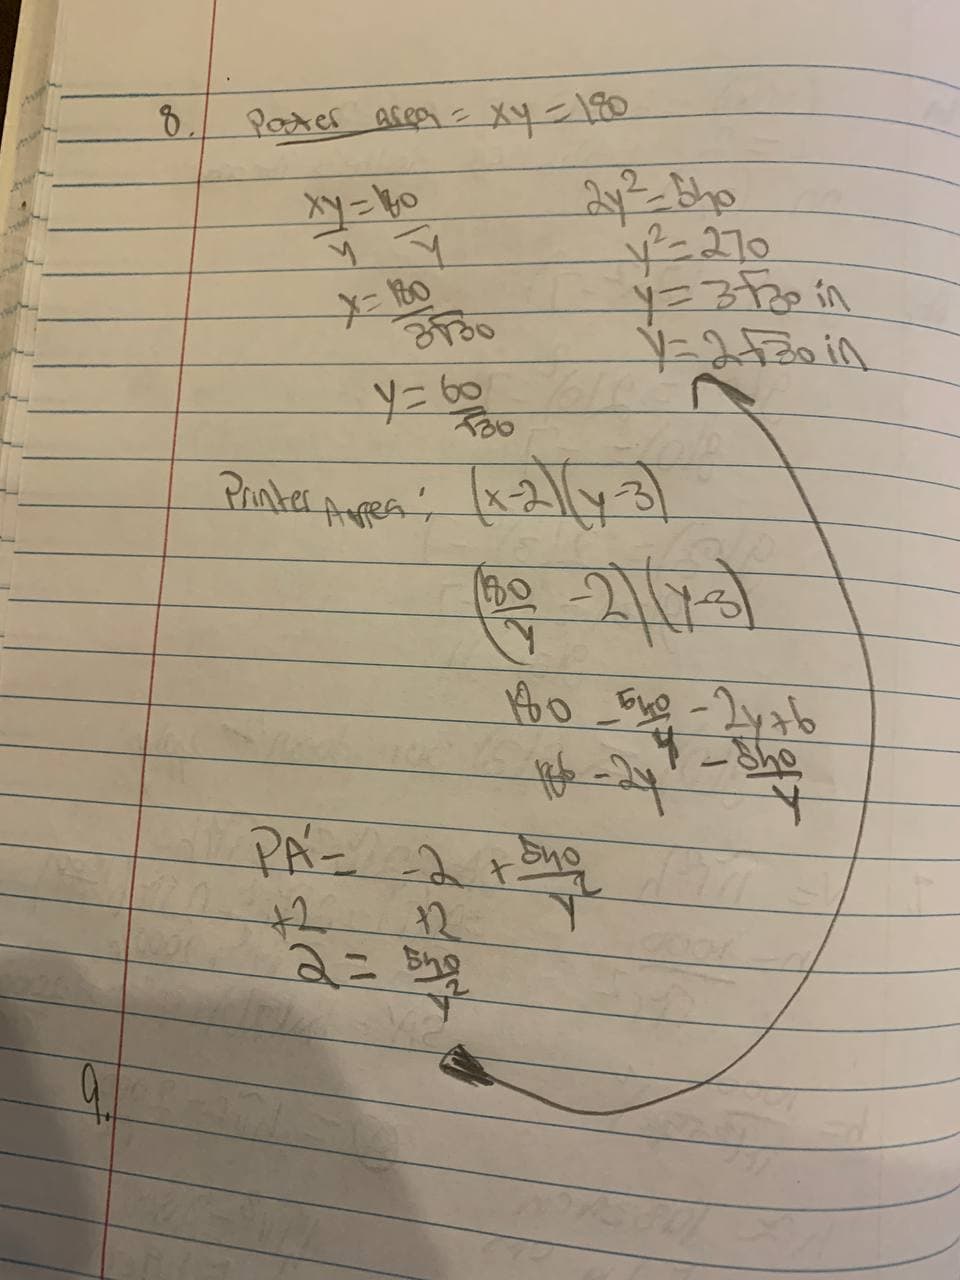 8. Poster area = xy = 180
xy = 180
y y
x = 180/3√30
y = 60/√30
2y² = 540
y² = 270
y = 3√30 in
y = 2√30 in
Printer Area: (x-2)(y-3)
(180/y - 2)(y-3)
180 - 540/y - 2y + 6
186 - 2y - 540/y
PA' = -2 + 540/y²
+2 +2
2 = 540/y²
9.